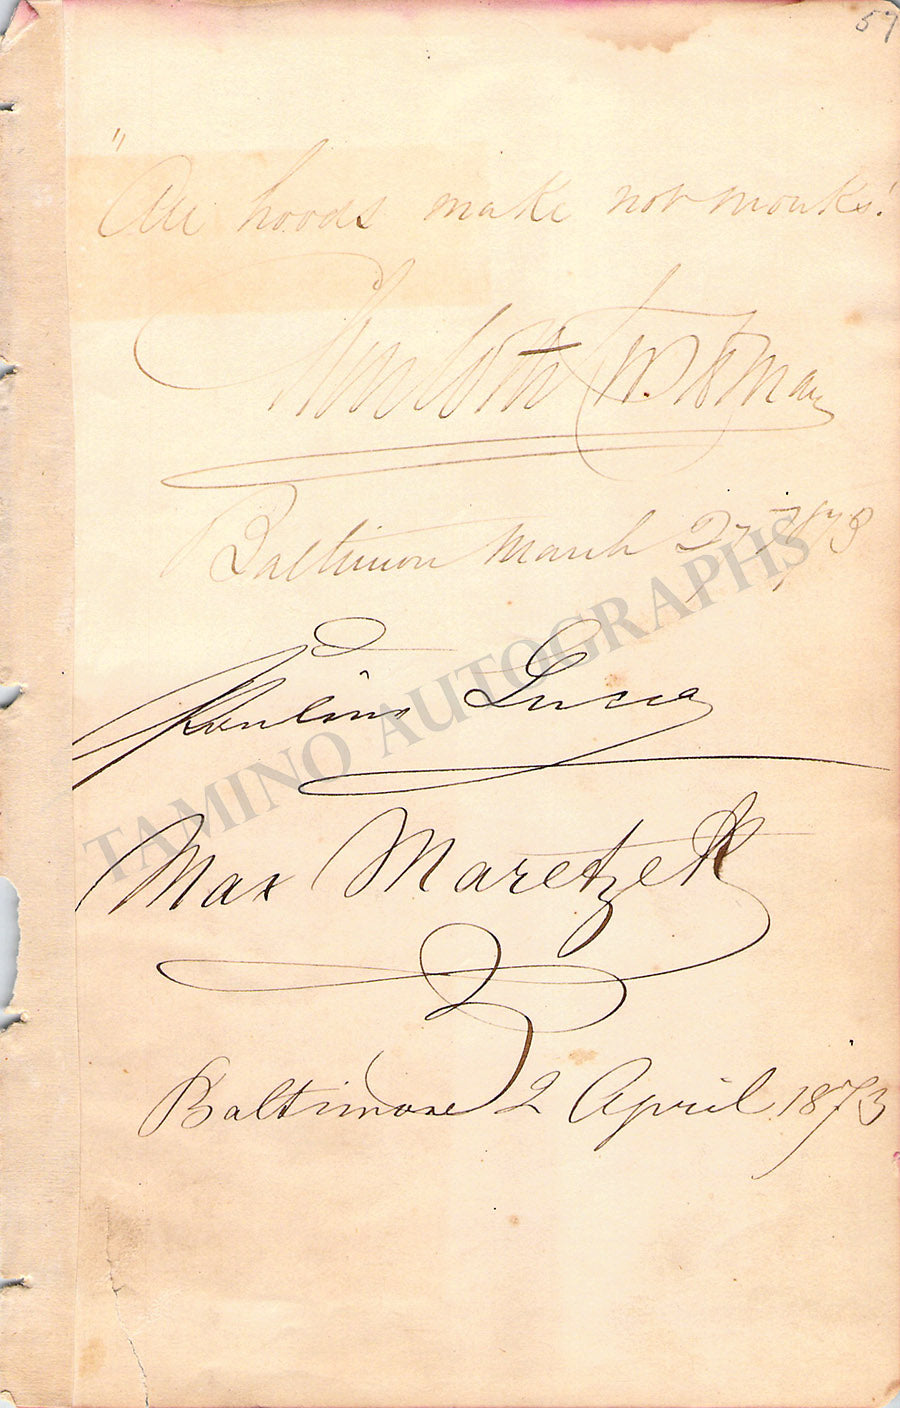 "All hoods make not monks!
Charlotte Cushman
Baltimore March 27 1873
Pauline Lucca
TAMINO AUTOGRAPHS
Max Maretzek
Baltimore 2 April 1873